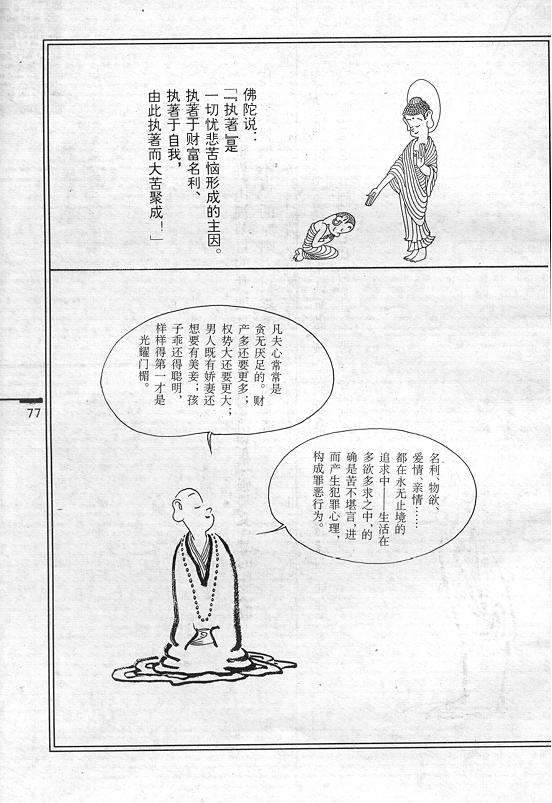 佛陀说：
「『执著』是
一切忧悲苦恼形成的主因。
执著于财富名利、
执著于自我，
由此执著而大苦聚成！」
凡夫心常常是
贪无厌足的。财
产多还要更多；
权势大还要更大；
男人既有娇妻还
想要有美妾；孩
子乖还得聪明，
样样得第一才是
光耀门楣。
名利、物欲、
爱情、亲情……
都在永无止境的
追求中——生活在
多欲多求之中，的
确是苦不堪言，进
而产生犯罪心理，
构成罪恶行为。
77